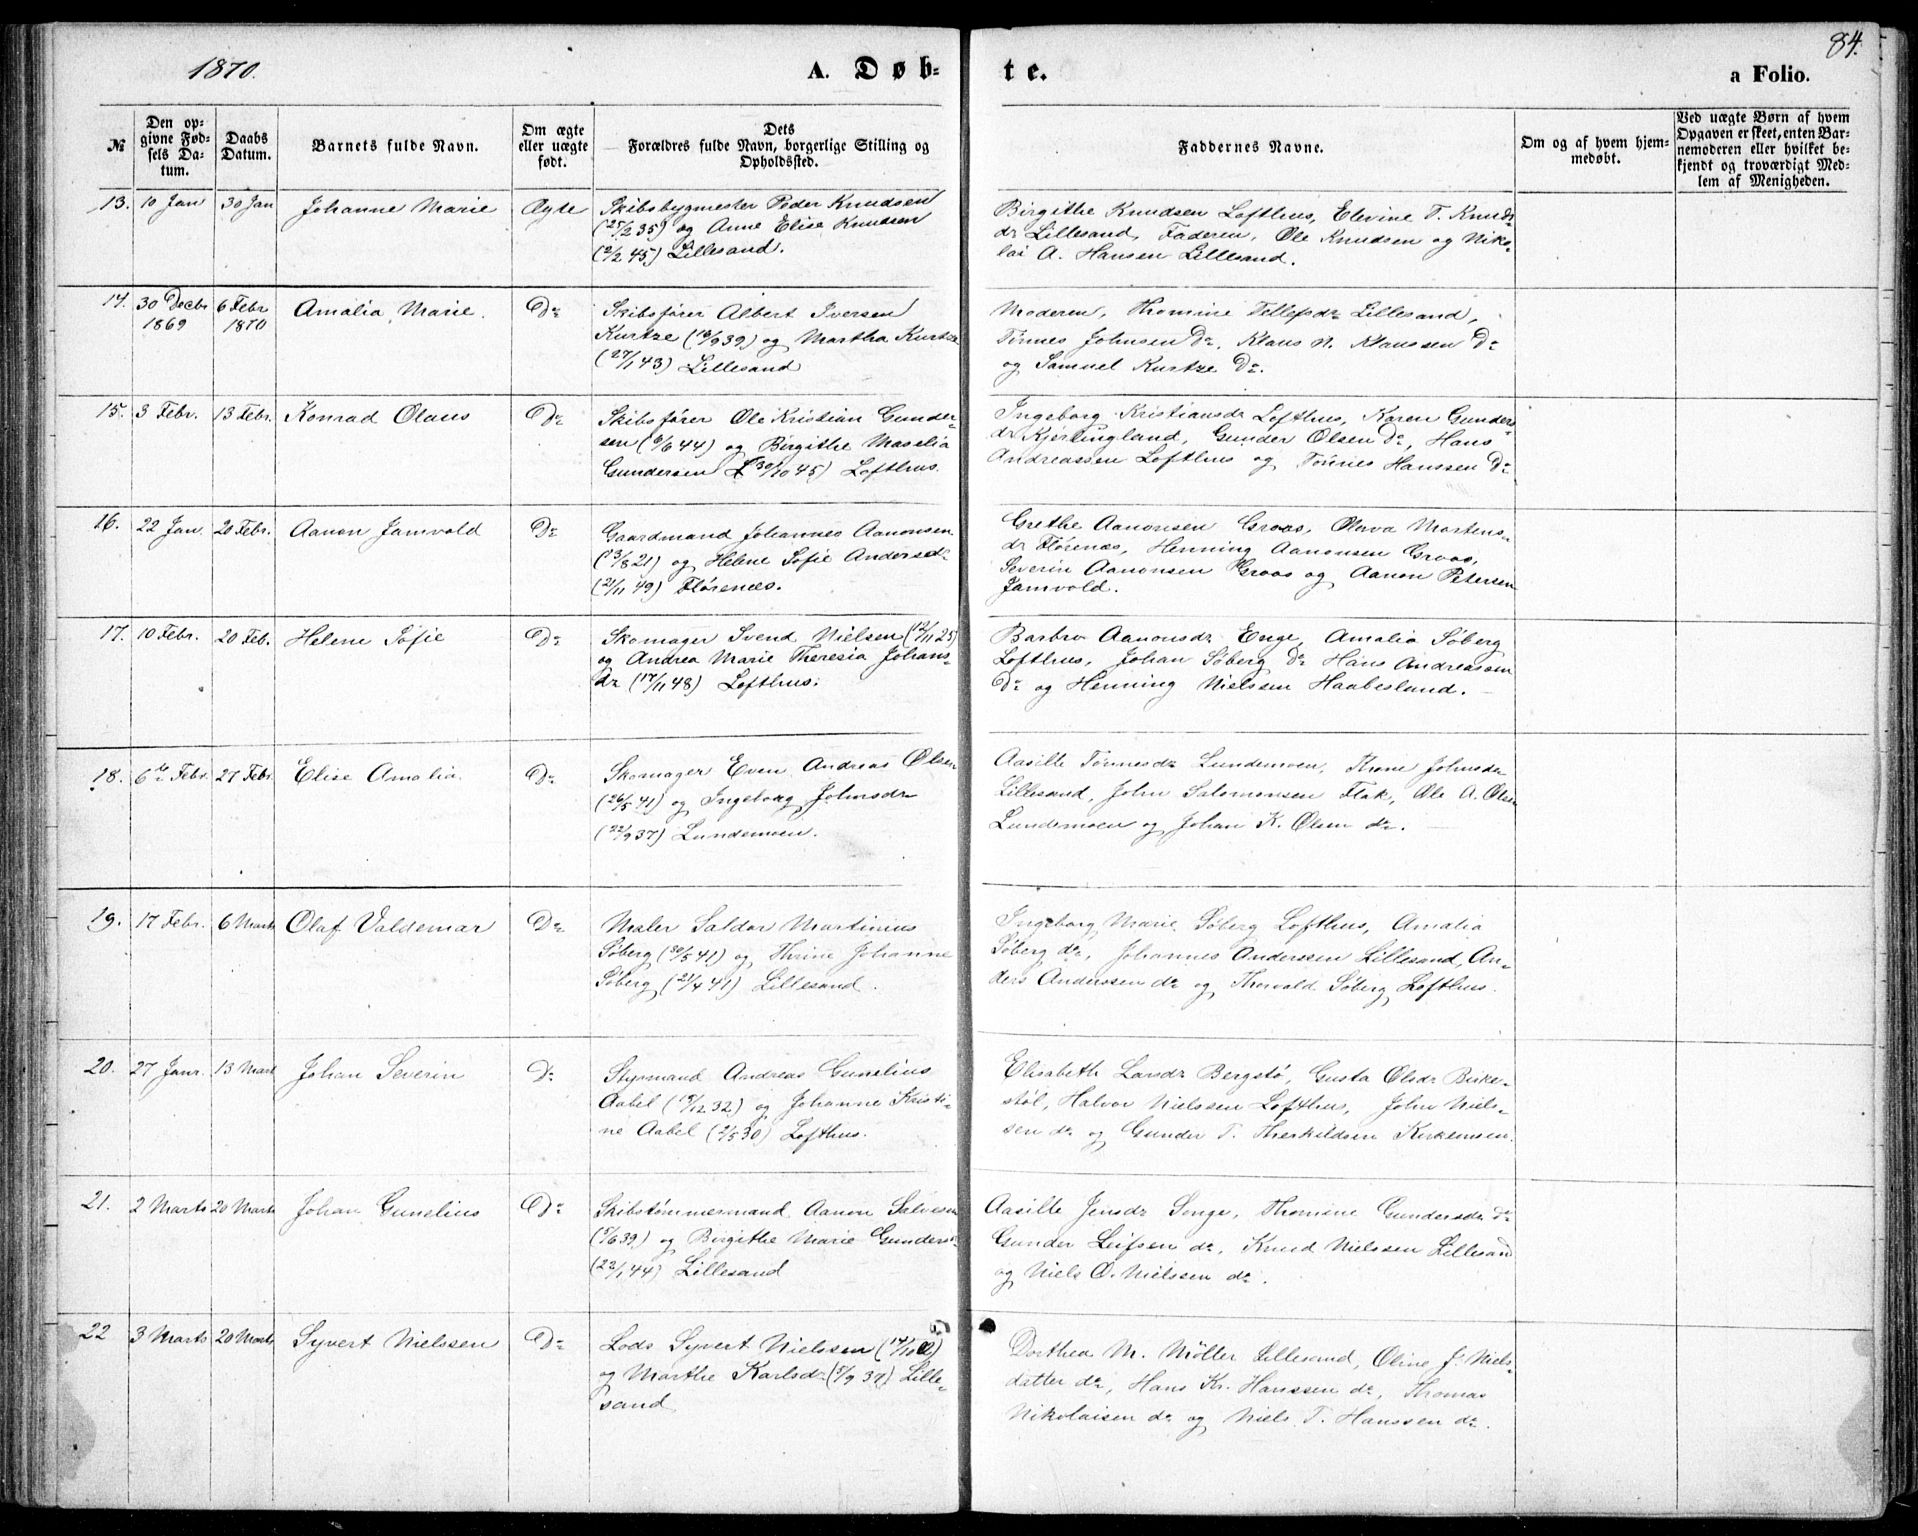 1870.
A. Døb-
te.
84.
a Folio.
№
Den op-
givne Fød-
sels Da-
tum.
Daabs
Datum.
Barnets fulde Navn.
Om ægte
eller uægte
født.
Dets
Forældres fulde Navn, borgerlige Stilling og
Opholdssted.
Faddernes Navne.
Om og af hvem hjem-
medøbt.
Ved uægte Børn af hvem
Opgaven er skeet, enten Bar-
nemoderen eller hvilket be-
kjendt og troværdigt Med-
lem af Menigheden.
13. 10 Jan 30 Jan Johanne Marie Ægte
Skibsbygmester Peder Knudsen
(25/2 35) og Anne Elise Knudsen
(2/2 45) Lillesand.
Birgithe Knudsen Lofthus, Elevine T. Knuds
dr Lillesand, Faderen, Ole Knudsen og Niko-
lai A. Hansen Lillesand.
14. 30 Decbr 1869 6 Febr 1870 Amalia Marie. Do
Skibsfører Albert Iversen
Kurtze (19/9 39) og Martha Kurtze
(27/1 43) Lillesand
Moderen, Thomine Tellefsdr Lillesand,
Tønnes Johnsen Do, Klaus N. Klaussen Do
og Samuel Kurtze Do.
15. 3 Febr. 13 Febr. Konrad Olaus Do
Skibsfører Ole Kristian Gunder-
sen (6/6 44) og Birgithe Maselia
Gundersen (30/10 45) Lofthus.
Ingeborg Kristiansdr Lofthus, Karen Gunders-
dr Kjerlingland, Gunder Olsen do, Hans
Andreassen Lofthus og Tønnes Hanssen Do
16. 22 Jan. 20 Febr. Aanon Jamvold Do
Gaardmand Johannes Aanonsen
(13/8 21) og Helene Sofie Andersdr
(21/11 49) Flørenæs.
Grethe Aanonsen Groos, Olava Martens-
dr Flørenæs, Henning Aanonsen Groos,
Severin Aanonsen Groos og Aanon Petersen
Jamvold.
17. 10 Febr. 20 Feb. Helene Sofie Do
Skomager Svend Nielsen (12/11 25)
og Andrea Marie Theresia Johans-
dr (17/11 48) Lofthus.
Barbro Aanonsdr Enge, Amalia Søberg
Lofthus, Johan Søberg do Hans Andreassen
Do og Henning Nielssen Haabesland.
18. 6te Febr. 27 Febr. Elise Amalia. Do
Skomager Even Andreas Olsen
(26/5 41) og Ingeborg Johnsdr
(22/9 37) Lundemoen.
Aasille Tønnesdr Lundemoen, Trone Johnsdr
Lillesand, John Salomonsen Flak, Ole A. Olsen
Lundemoen og Johan K. Olsen do.
19. 17 Febr. 6 Marts Olaf Valdemar Do
Maler Saldor Martinius
Søberg (30/5 41) og Thrine Johanne
Søberg (21/4 41) Lillesand.
Ingeborg Marie Søberg Lofthus, Amalia
Søberg do, Johannes Anderssen Lillesand, An-
ders Anderssen do og Thorvald Søberg Lofthus.
20. 27 Janr. 13 Mart Johan Severin Do
Styrmand Andreas Gunelius
Aabel (19/12 32) og Johanne Kristi-
ne Aabel (2/5 30) Lofthus.
Elisabeth Larsdr Bergstø, Gusta Olsdr Birke-
støl, Halvor Nielssen Lofthus, John Niels-
sen do og Gunder T. Therkildsen Kirkemoen.
21. 2 Marts 20 Marts Johan Gunelius Do
Skibstømmermand Aanon Salvesen
(5/6 39) og Birgithe Marie Gundersdr
(22/1 44) Lillesand
Aasille Jensdr Songe, Thomine Gundersdr do
Gunder Leifsen do, Knud Nielssen Lillesand
og Niels O. Nielssen do.
22 3 Marts 20 Marts Syvert Nielssen Do
Lods Syvert Nielssen
og Marthe Karlsdr (5/9 37) Lille-
sand
Dorthea M. Møller Lillesand, Oline J. Niels-
datter do, Hans Kr. Hanssen do, Thomas
Nikolaisen do og Niels T. Hanssen do.